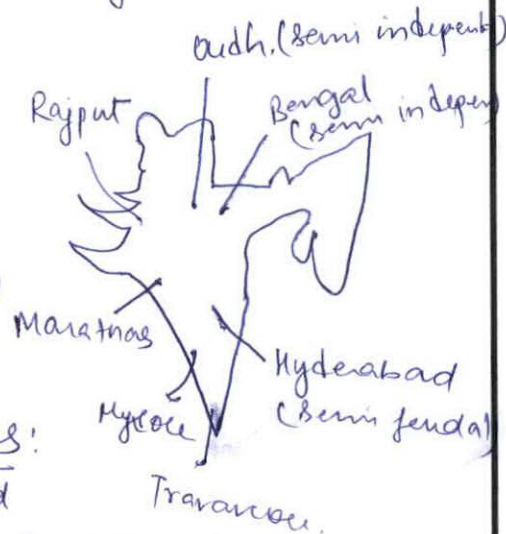 oudh. (semi independent)
Rajput
Bengal
(semi indepen
Marathas
Hyderabad
(semi feudal)
Mysore
Travancore.